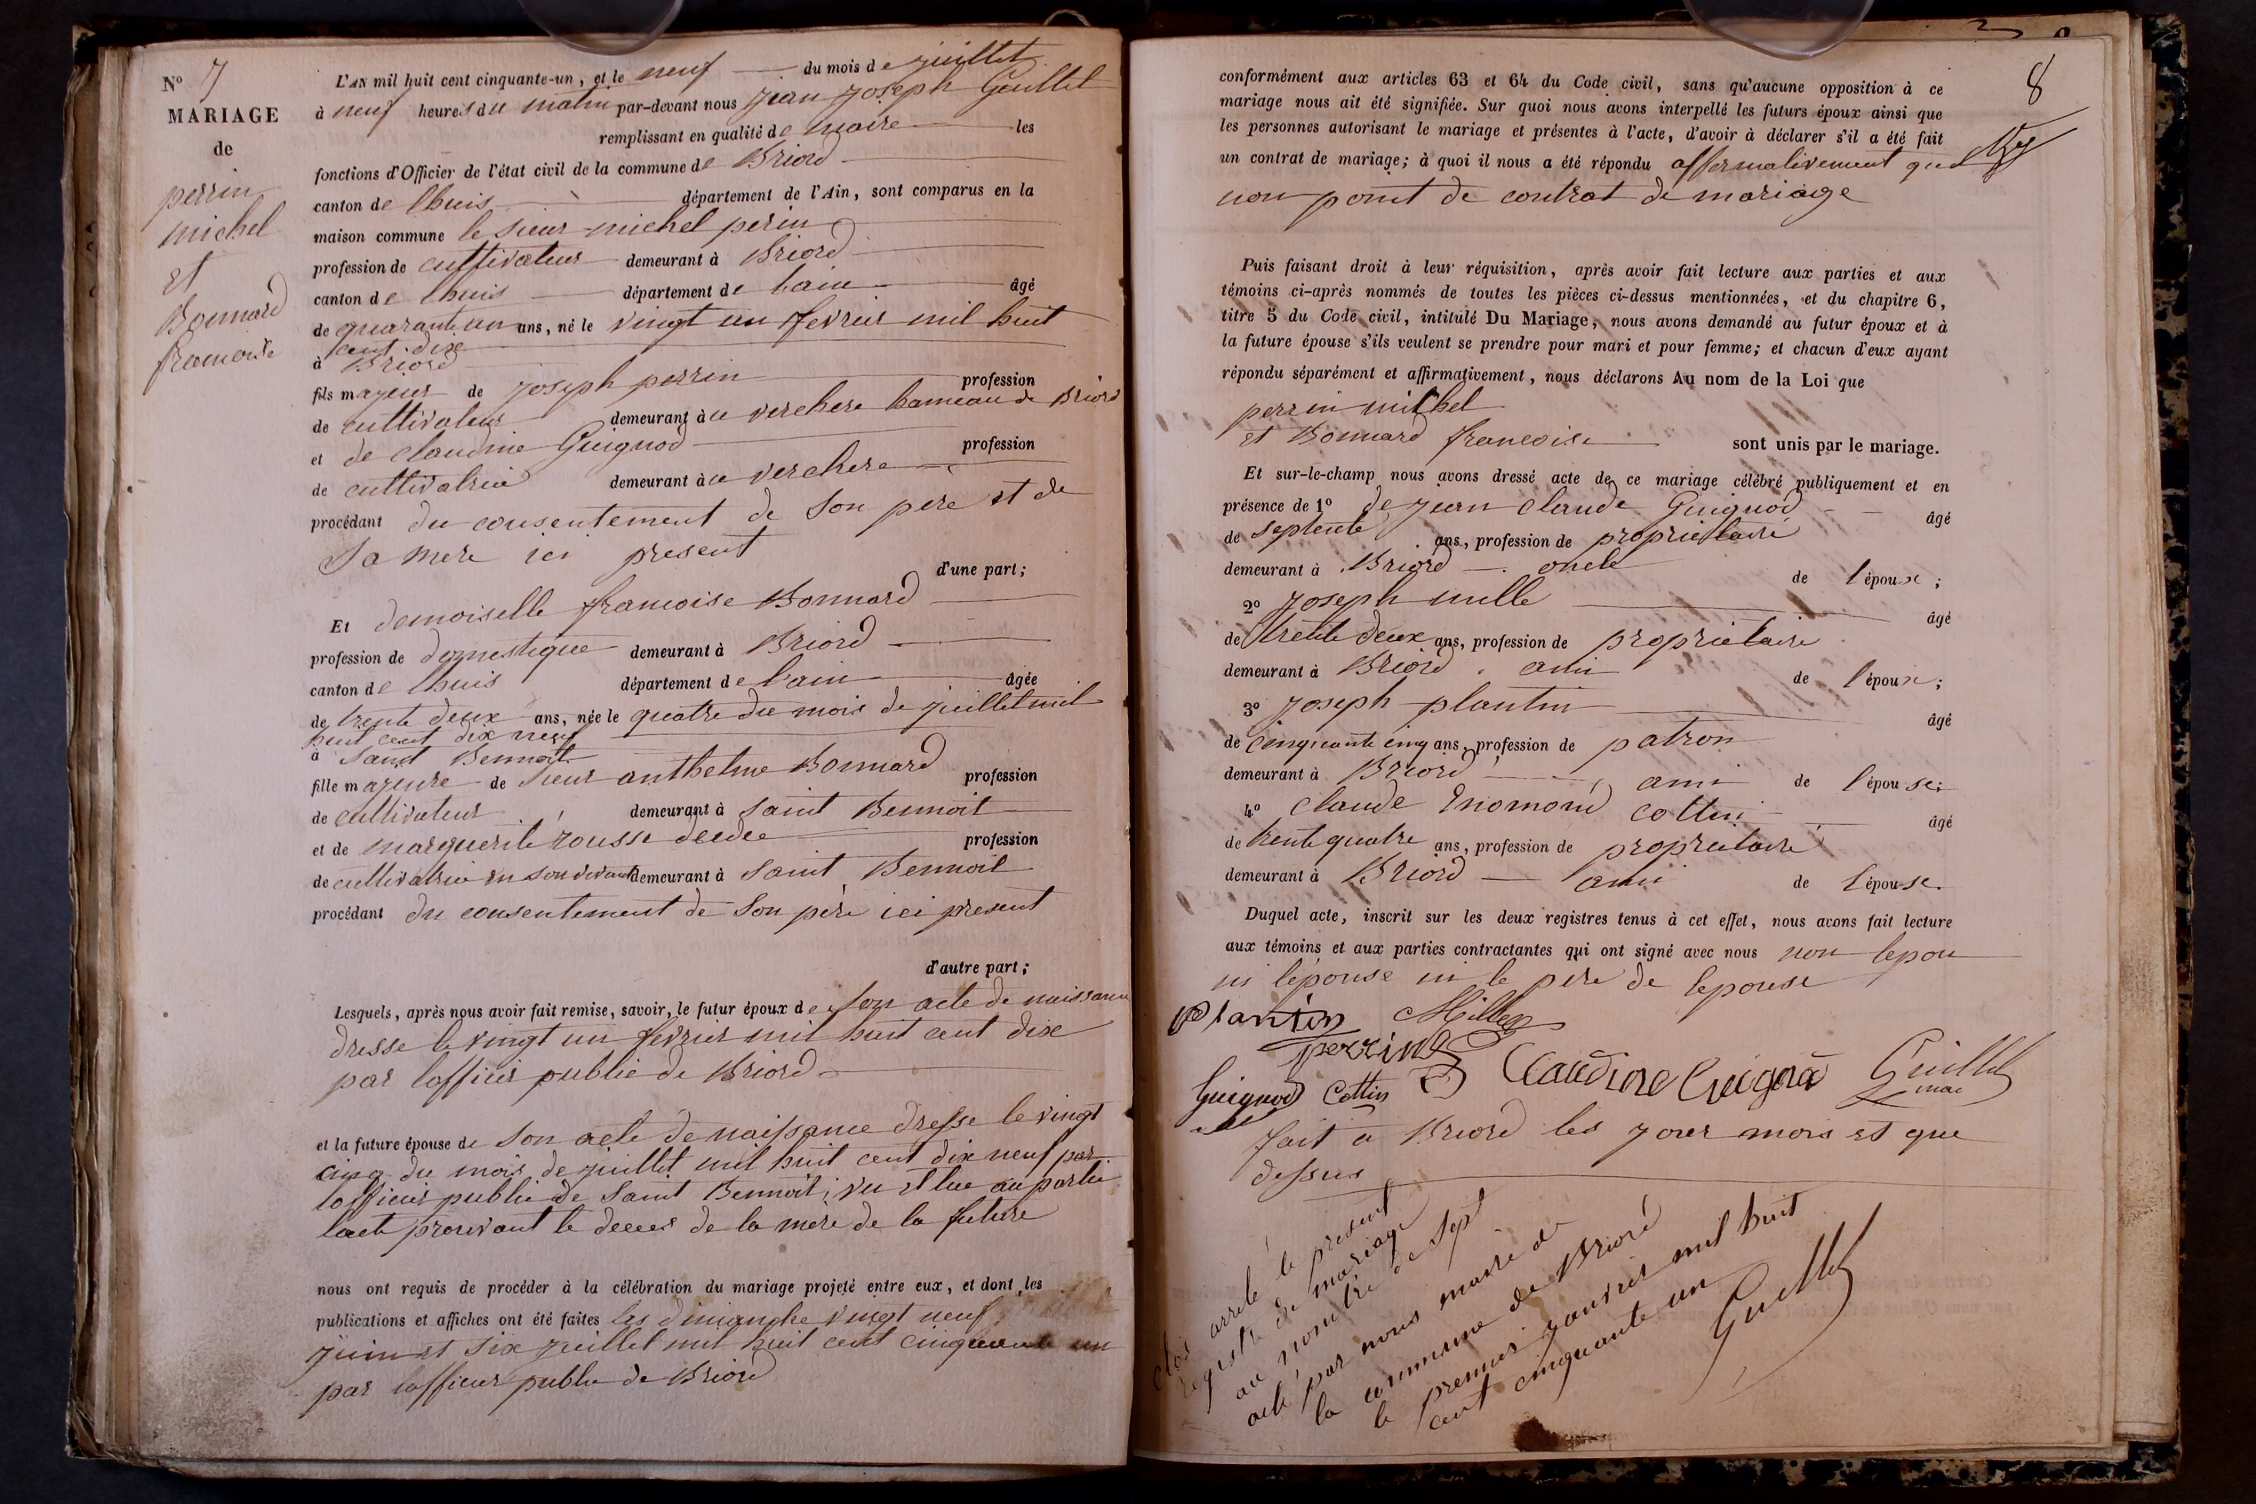 N° 7
MARIAGE
de
perrin
michel
et
Bonnard
francoise
L'AN mil huit cent cinquante-un, et le neuf du mois de juillet
à neuf heures du matin par-devant nous jean joseph Guillet
remplissant en qualité de maire les
fonctions d'Officier de l'état civil de la commune de Briord
canton de lhuis département de l'Ain, sont comparus en la
maison commune le sieur michel perin
profession de cultivateur demeurant à Briord
canton de lhuis département de lain âgé
de quarante un ans, né le vingt un fevrier mil huit
cent dix
à Briord
fils majeur de joseph perrin profession
de cultivateur demeurant à ce verchere hameau de Briord
et de claudine Guignod profession
de cultivatrice demeurant à ce verchere
procédant du consentement de son père et de
sa mere ici present
d'une part;
Et demoiselle francoise Bonnard
profession de domestique demeurant à Briord
canton de lhuis département de l'ain âgée
de trente deux ans, née le quatre du mois de juillet mil
huit cent dix neuf
à Saint Bennoit
fille majeure de sieur anthelme Bonnard profession
de cultivateur demeurant à saint Bennoit
et de marguerite rousse profession
de cultivatrice en son vivant demeurant à saint Bennoit
procédant du consentement de son père ici present
d'autre part;
Lesquels, après nous avoir fait remise, savoir, le futur époux de son acte de naissance
dresse le vingt un fevrier mil huit cent dix
par lofficier public de Briord
et la future épouse de son acte de naissance dresse le vingt
cinq du mois de juillet mil huit cent dix neuf par
lofficier public de Saint Bennoit, vu et lue au partie
lacte prouvant le deces de la mere de la future
nous ont requis de procéder à la célébration du mariage projeté entre eux, et dont les
publications et affiches ont été faites les dimanche vingt neuf
juin et six juillet mil huit cent cinquante un
par lofficier public de Briord
8
conformément aux articles 63 et 64 du Code civil, sans qu'aucune opposition à ce
mariage nous ait été signifiée. Sur quoi nous avons interpellé les futurs époux ainsi que
les personnes autorisant le mariage et présentes à l'acte, d'avoir à déclarer s'il a été fait
un contrat de mariage; à quoi il nous a été répondu affermativement quil
non point de contrat de mariage
Puis faisant droit à leur réquisition, après avoir fait lecture aux parties et aux
témoins ci-après nommés de toutes les pièces ci-dessus mentionnées, et du chapitre 6,
titre 5 du Code civil, intitulé Du Mariage, nous avons demandé au futur époux et à
la future épouse s'ils veulent se prendre pour mari et pour femme; et chacun d'eux ayant
répondu séparément et affirmativement, nous déclarons Au nom de la Loi que
perrin michel
et Bonnard francoise sont unis par le mariage.
Et sur-le-champ nous avons dressé acte de ce mariage célébré publiquement et en
présence de 1° de jean claude Guignod âgé
de septente ans, profession de proprietaire
demeurant à Briord oncle de l'époux;
2° joseph mille âgé
de trente deux ans, profession de proprietaire
demeurant à Briord ami de l'époux;
3° joseph plantin âgé
de cinquante cinq ans, profession de patron
demeurant à Briord ami de l'épouse;
4° claude cottin âgé
de trente quatre ans, profession de proprietaire
demeurant à Briord ami de l'épouse.
Duquel acte, inscrit sur les deux registres tenus à cet effet, nous avons fait lecture
aux témoins et aux parties contractantes qui ont signé avec nous non lepou
ni lépouse ni le père de lepouse
plantin Millet
perrin
Guignod Cottin Claudine Guignod Guillet
mai
fait a Briord les jour mois et que
dessus
clos arrete le present
registre de mariage
au nombre de sept
acte par nous maire de
la commune de Briord
le premier janvier mil huit
cent cinquante un
Guillet